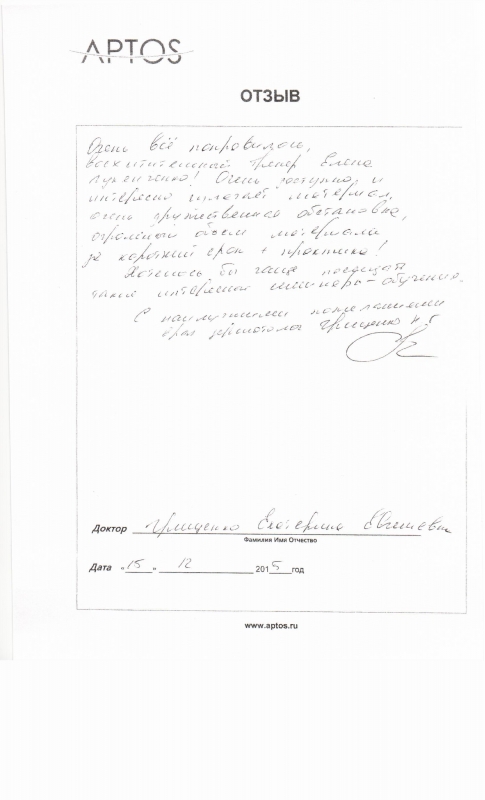 APTOS
ОТЗЫВ
Очень всё понравилось,
восхитительный тренер Елена
Очень доступно и
интересно излагает материал,
очень дружественная обстановка,
огромный объем материала
за короткий срок + практика!
Хотелось бы чаще посещать
такие интересные семинары-обучения.
С наилучшими пожеланиями
врач Грищенко
Доктор Грищенко Екатерина Евгеньевна
Фамилия Имя Отчество
Дата «15» 12 2015 год
www.aptos.ru